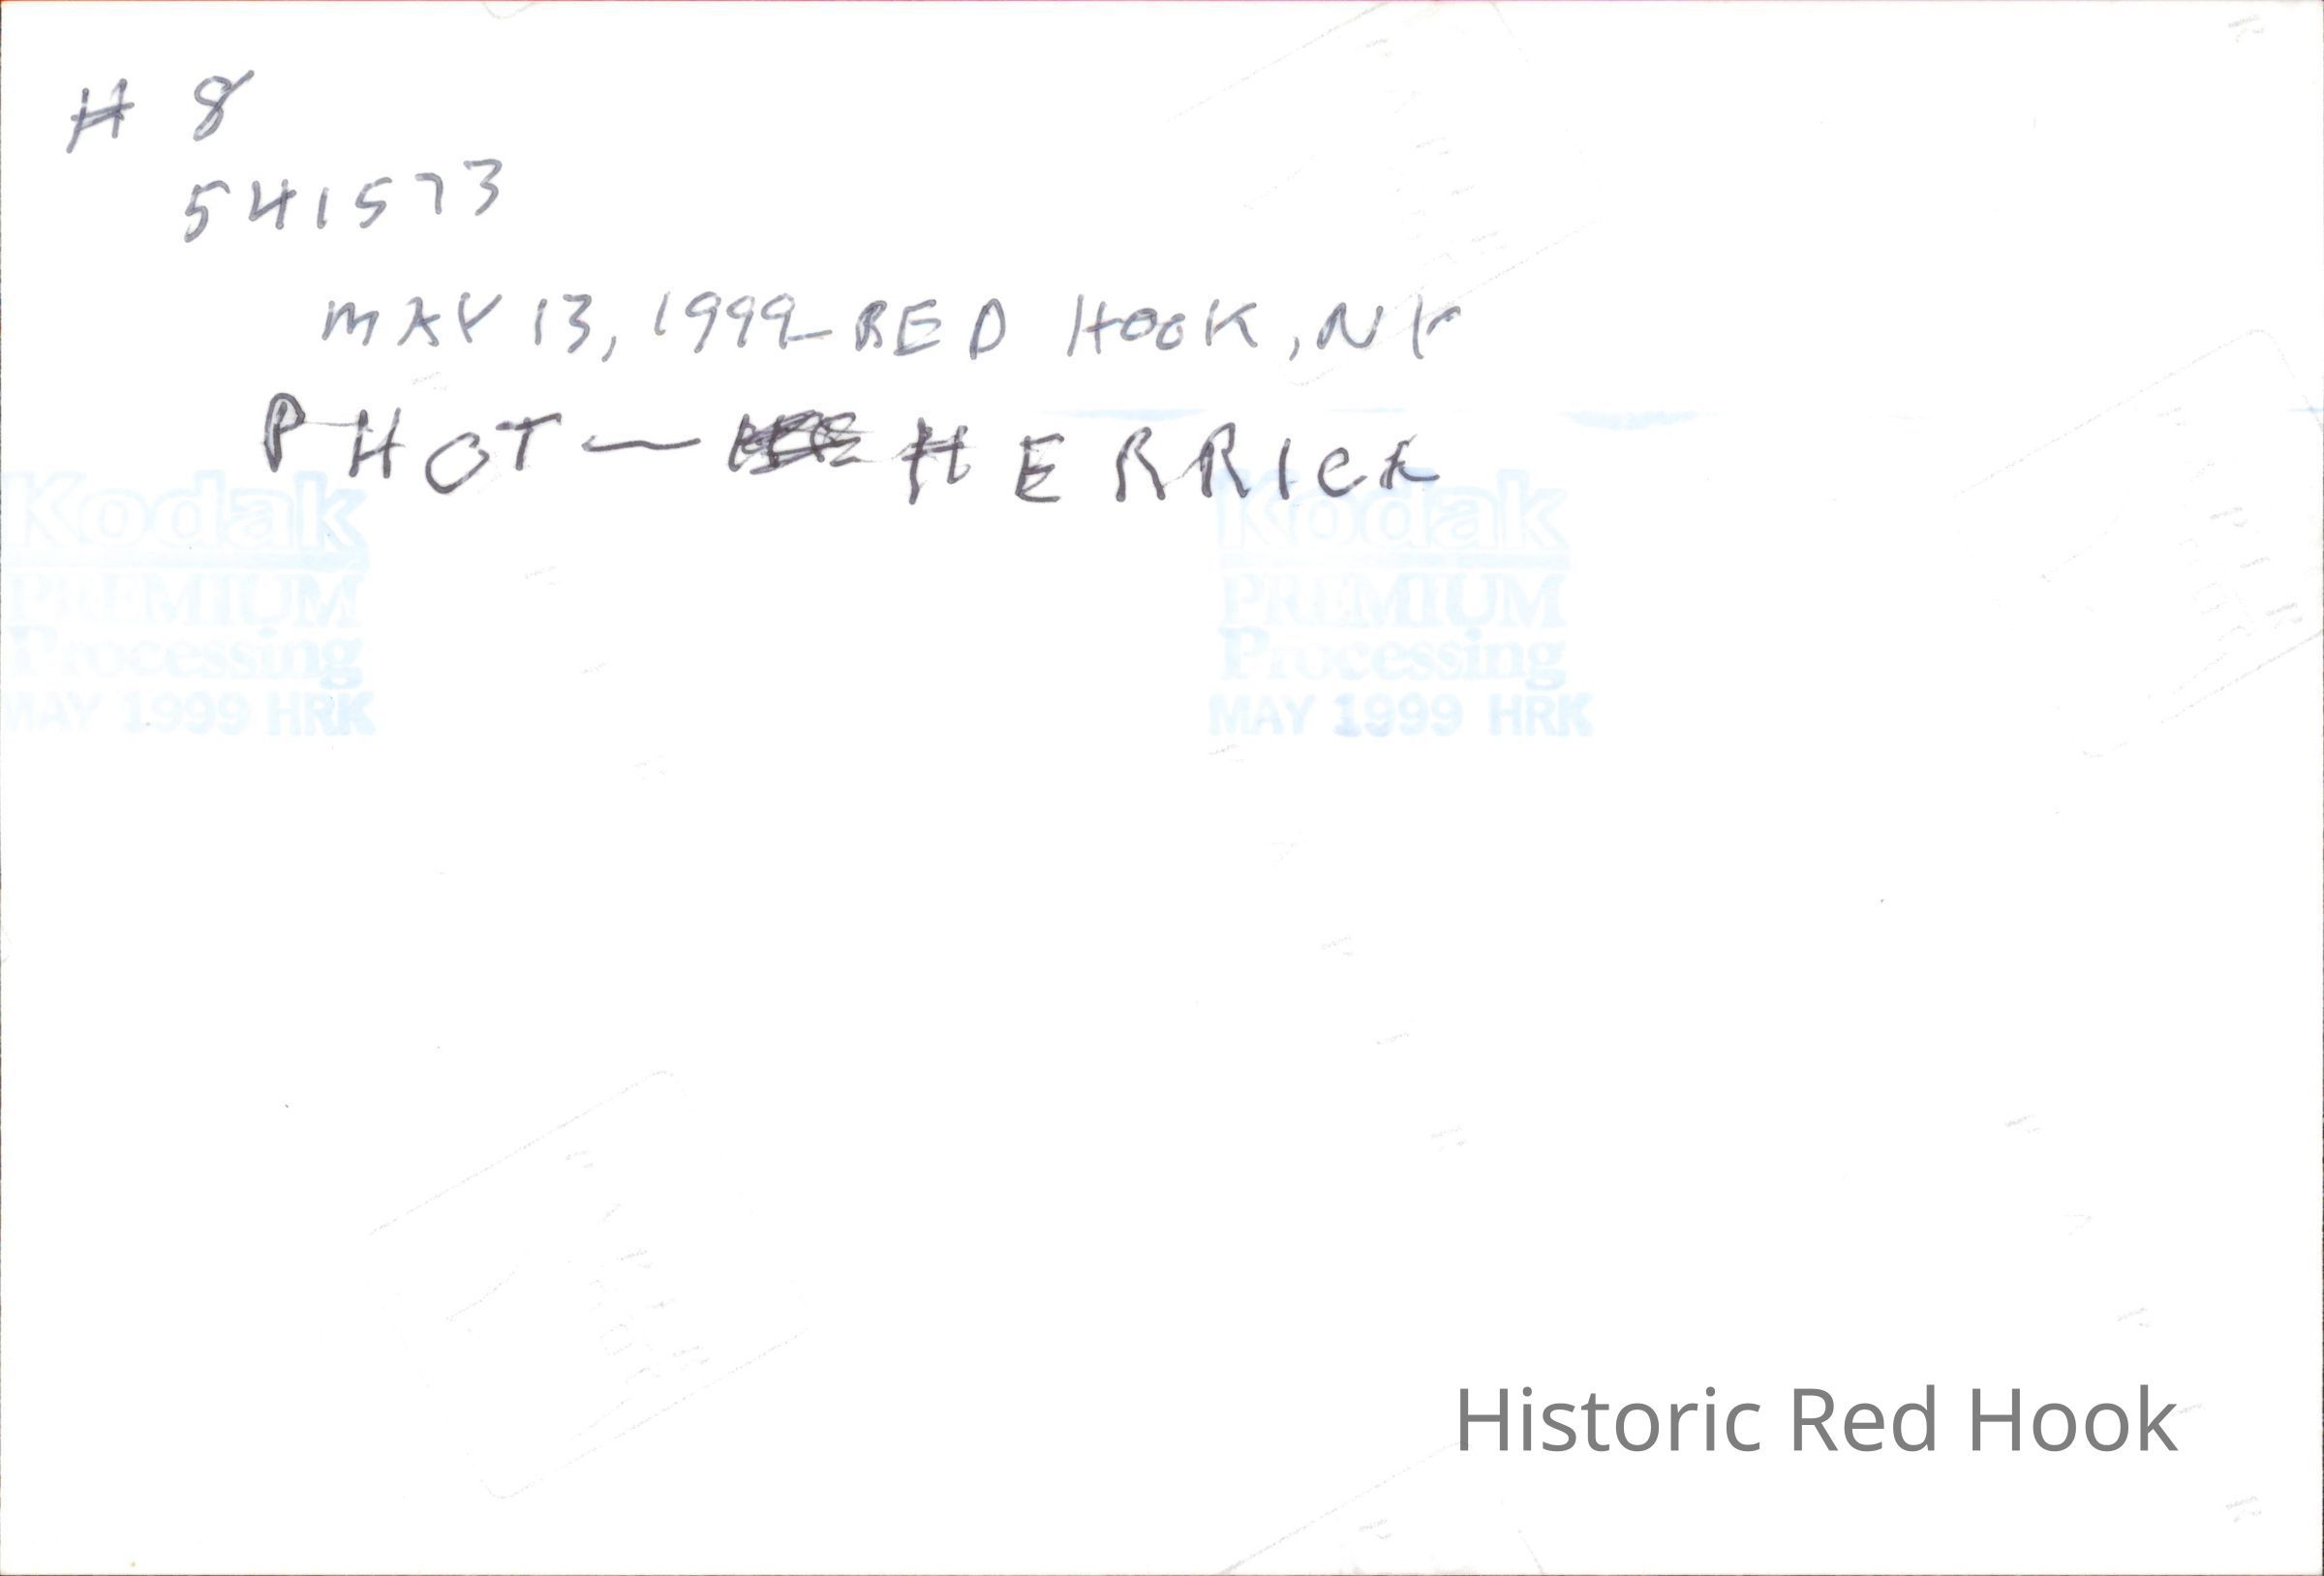 # 8
541573
MAY 13, 1999 - RED HOOK, NY
PHOT — HERRICK
Kodak Kodak
PREMIUM PREMIUM
Processing Processing
MAY 1999 HRK MAY 1999 HRK
Historic Red Hook